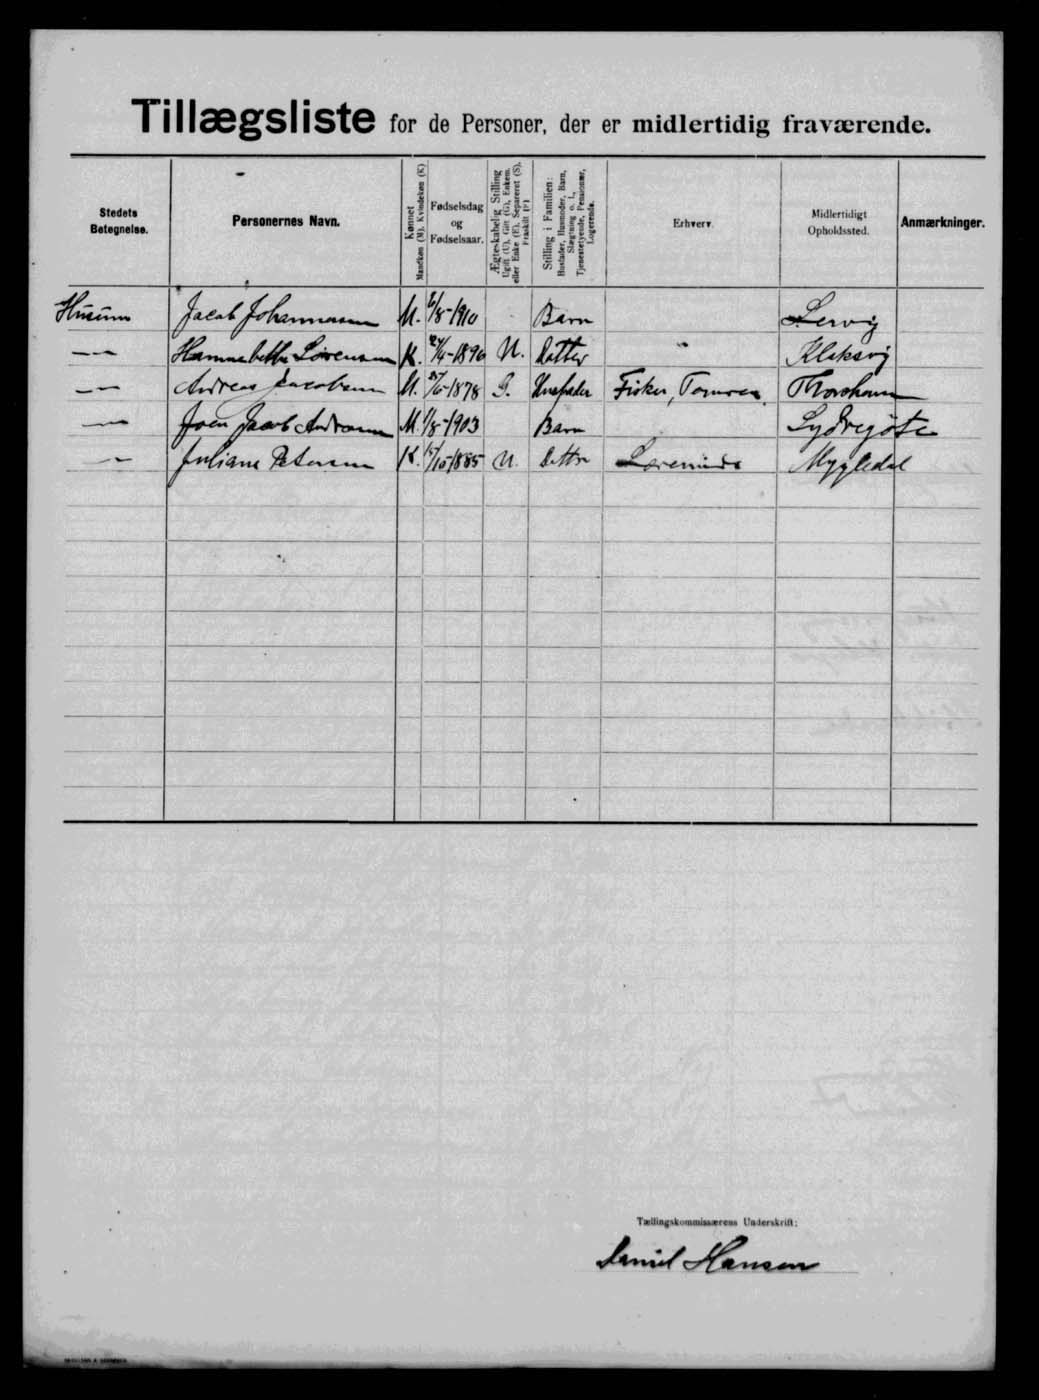 Tillægsliste for de Personer, der er midlertidig fraværende.
Stedets Betegnelse.
Personernes Navn.
Kønnet Mandkøn (M), Kvindekøn (K)
Fødselsdag og Fødselsaar.
Ægteskabelig Stilling Ugift (U), Gift (G), Enkem. eller Enke (E), Separeret (S), Fraskilt (F)
Stilling i Familien: Husfader, Husmoder, Barn, Slægtning o. l., Tjenestetyende, Pensionær, Logerende.
Erhverv.
Midlertidigt Opholdssted.
Anmærkninger.
Husum Jacob Johannesen M. /8-1910 Barn Lervig
— Hannabetha Sørensen K. /4-1890 U. Datter Klaksvig
— Andreas Jacobsen M. 1878 G. Husfader Fisker, Tømrer, Thorshavn
— Joen Jacob Andreasen M. 1/8-1903 Barn Sydregøte
— Juliane Petersen K. 15/10-1885 U. Datter Lærerinde Mygledal
Tællingskommissærens Underskrift:
Daniel Hansen